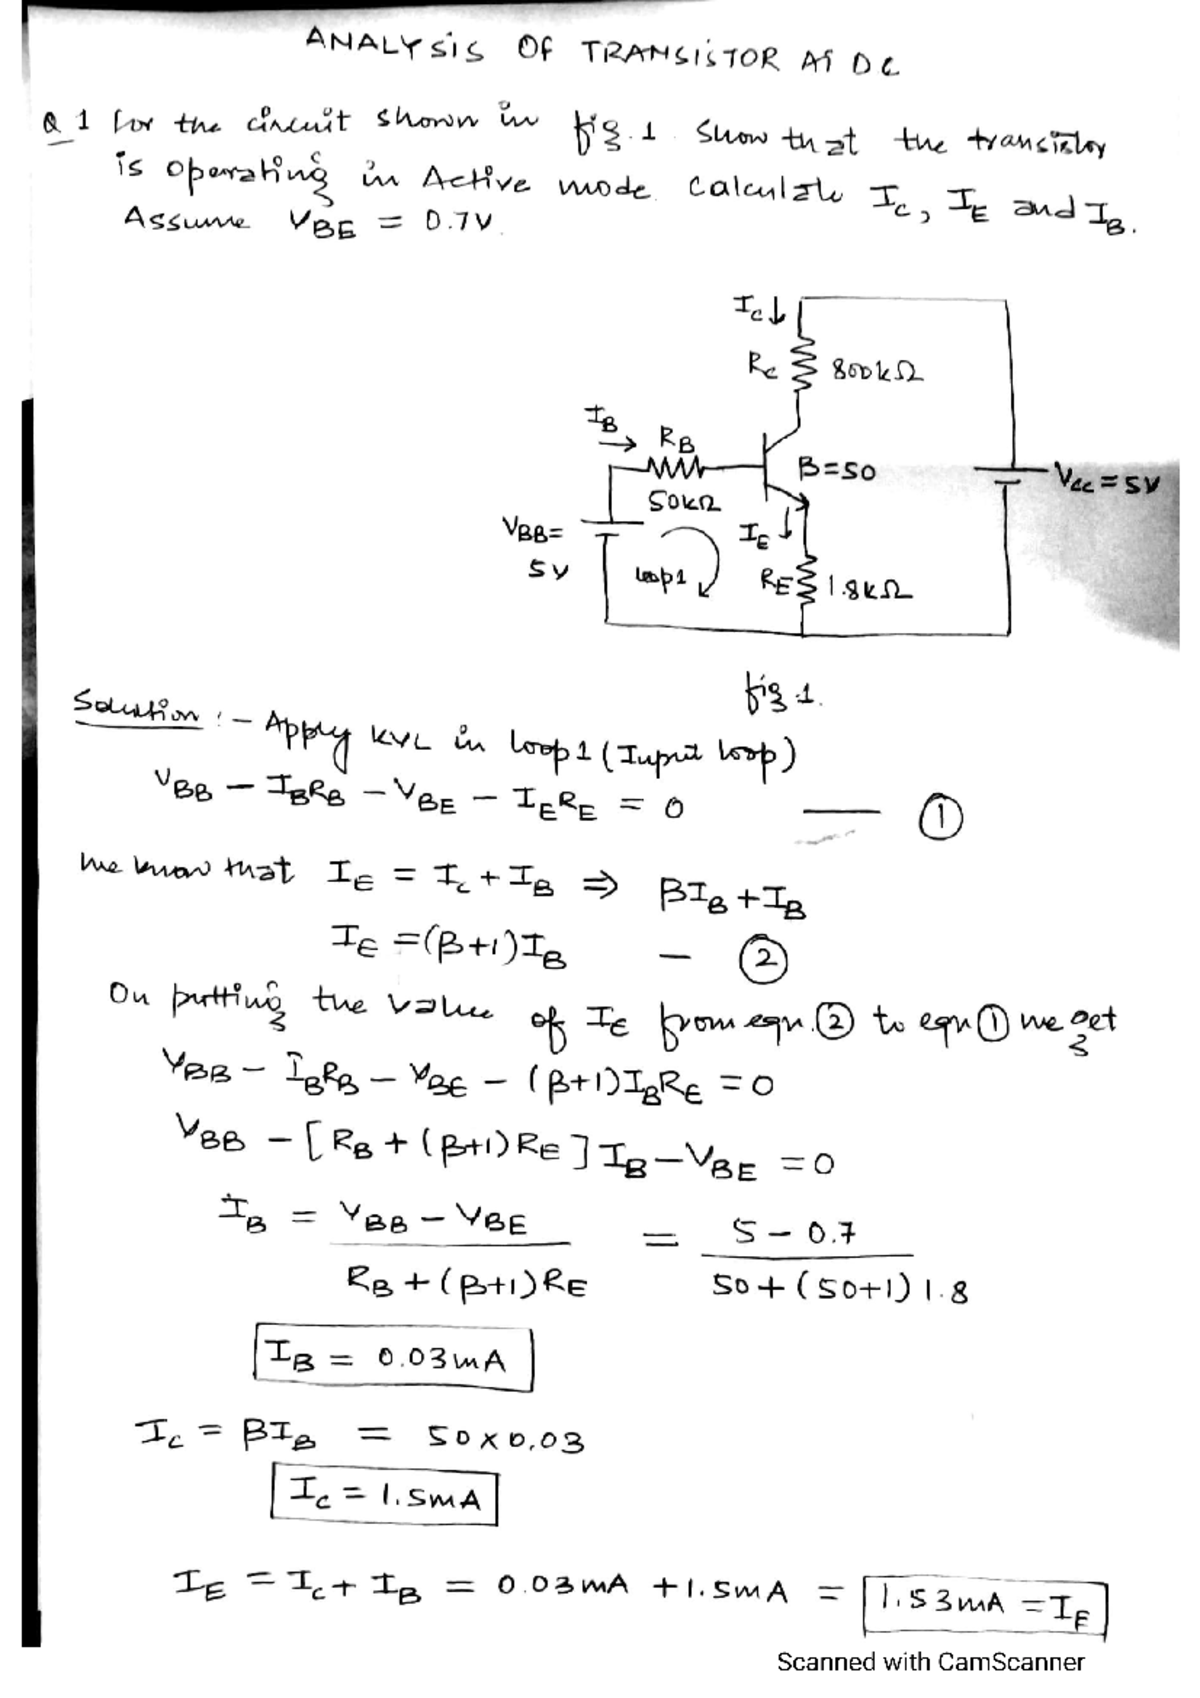 ANALYSIS OF TRANSISTOR AT DC
Q 1 For the circuit shown in fig. 1. Show that the transistor
is operating in Active mode. Calculate I_C, I_E and I_B.
Assume V_BE = 0.7V.
I_C ↓
R_C 800kΩ
I_B →
R_B
50kΩ
β=50
V_CC = 5V
V_BB =
5V
loop1
I_E ↓
R_E 1.8kΩ
fig 1.
Solution :- Apply KVL in loop 1 (Input loop)
V_BB - I_B R_B - V_BE - I_E R_E = 0 — ①
We know that I_E = I_C + I_B ⇒ βI_B + I_B
I_E = (β+1)I_B — ②
On putting the value of I_E from eqn. ② to eqn ① we get
V_BB - I_B R_B - V_BE - (β+1)I_B R_E = 0
V_BB - [R_B + (β+1)R_E] I_B - V_BE = 0
I_B = (V_BB - V_BE) / (R_B + (β+1)R_E) = (5 - 0.7) / (50 + (50+1) 1.8)
I_B = 0.03mA
I_C = βI_B = 50 × 0.03
I_C = 1.5mA
I_E = I_C + I_B = 0.03mA + 1.5mA = 1.53mA = I_E
Scanned with CamScanner